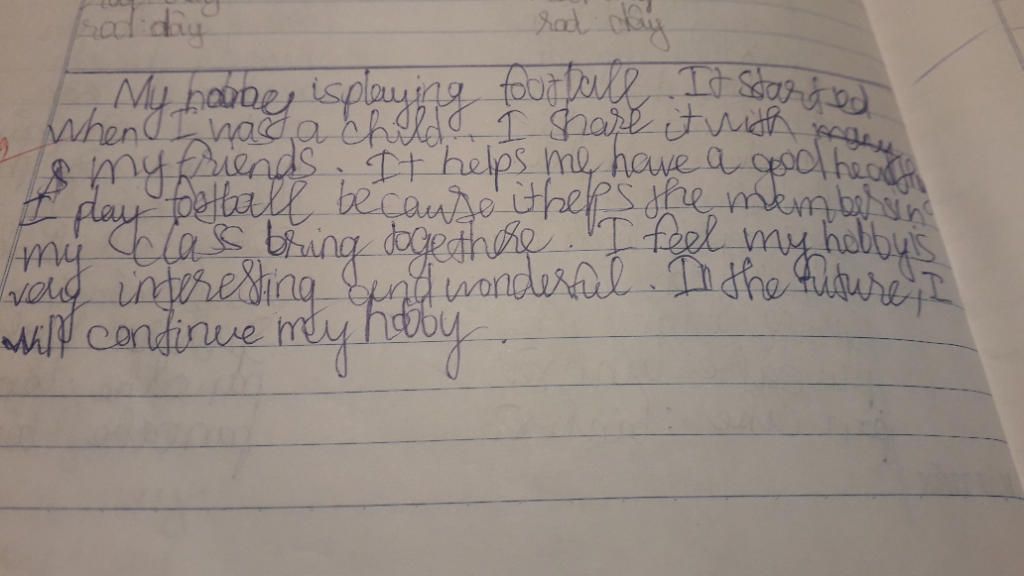 rad day rad day
My hobbey is playing football. It started
when I was a child. I share it with
my friends. It helps me have a good
I play football because it helps the members in
my class bring dogethore. I feel my hobby is
very interesting and wonderful. In the future, I
will continue my hobby.